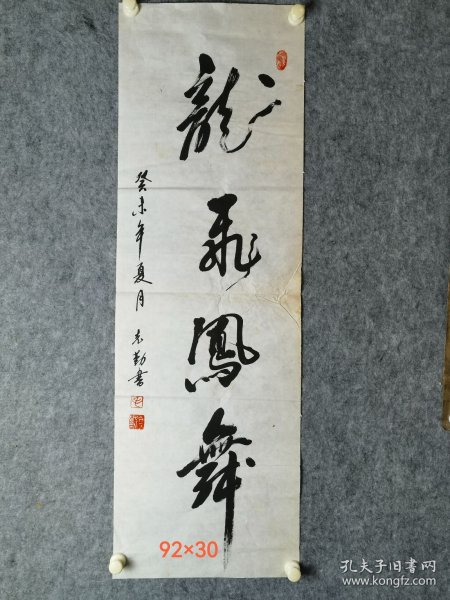 龍飛鳳舞
癸未年夏月 志勤書
92×30
孔夫子旧书网
www.kongfz.com